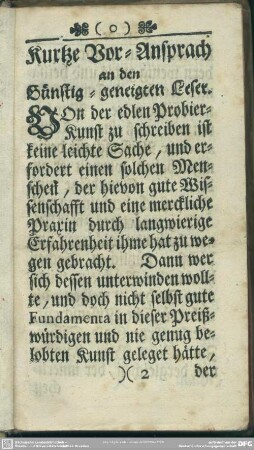 ( o )
Kurtze Vor-Ansprach
an den
Günstig-geneigten Leser.
VOn der edlen Probier-
Kunst zu schreiben ist
keine leichte Sache, und er-
fordert einen solchen Men-
schen, der hievon gute Wis-
senschafft und eine merckliche
Praxin durch langwierige
Erfahrenheit ihme hat zu we-
gen gebracht. Dann wer
sich dessen unterwinden woll-
te, und doch nicht selbst gute
Fundamenta in dieser Preiß-
würdigen und nie genug be-
lobten Kunst geleget hätte,
)( 2 der